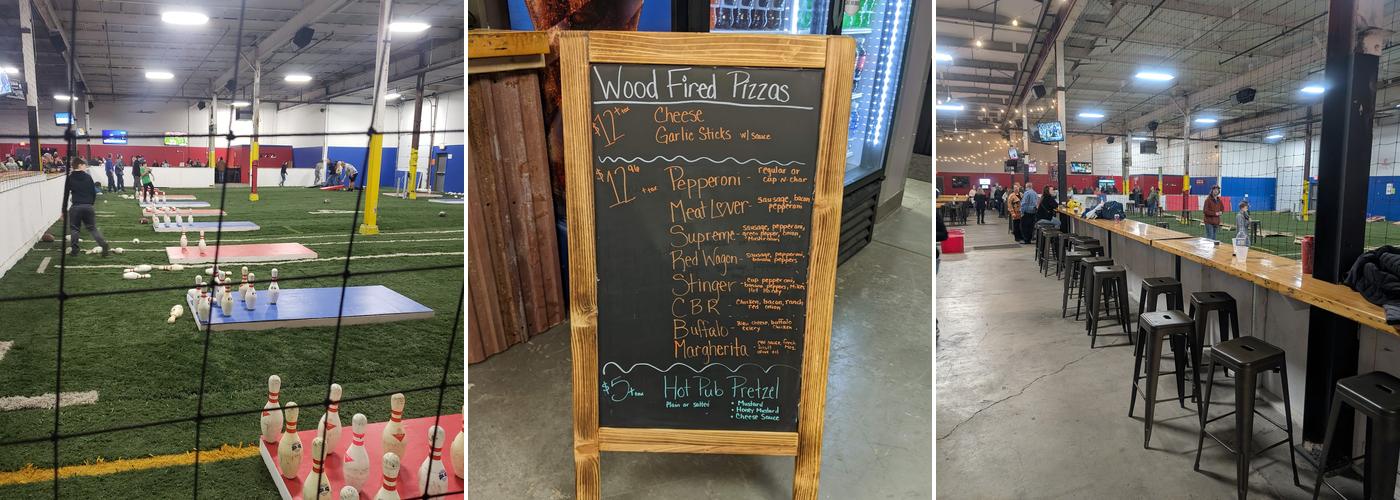 Wood Fired Pizzas
$12 + tax
Cheese
Garlic Sticks w/ sauce
$12 + tax
Pepperoni - regular or
cup-n-char
Meat Lover - sausage, bacon
pepperoni
Supreme - sausage, pepperoni,
green pepper, onion,
mushrooms
Red Wagon - sausage, pepperoni,
banana peppers
Stinger - cup pepperoni,
banana peppers, Mikes
Hot Honey
CBR - Chicken, bacon, ranch,
red onion
Buffalo - Bleu cheese, buffalo
celery chicken
Margherita - red sauce, fresh
basil moz.
olive oil
$5 + tax
Hot Pub Pretzel
Plain or salted
• Mustard
• Honey Mustard
• Cheese Sauce